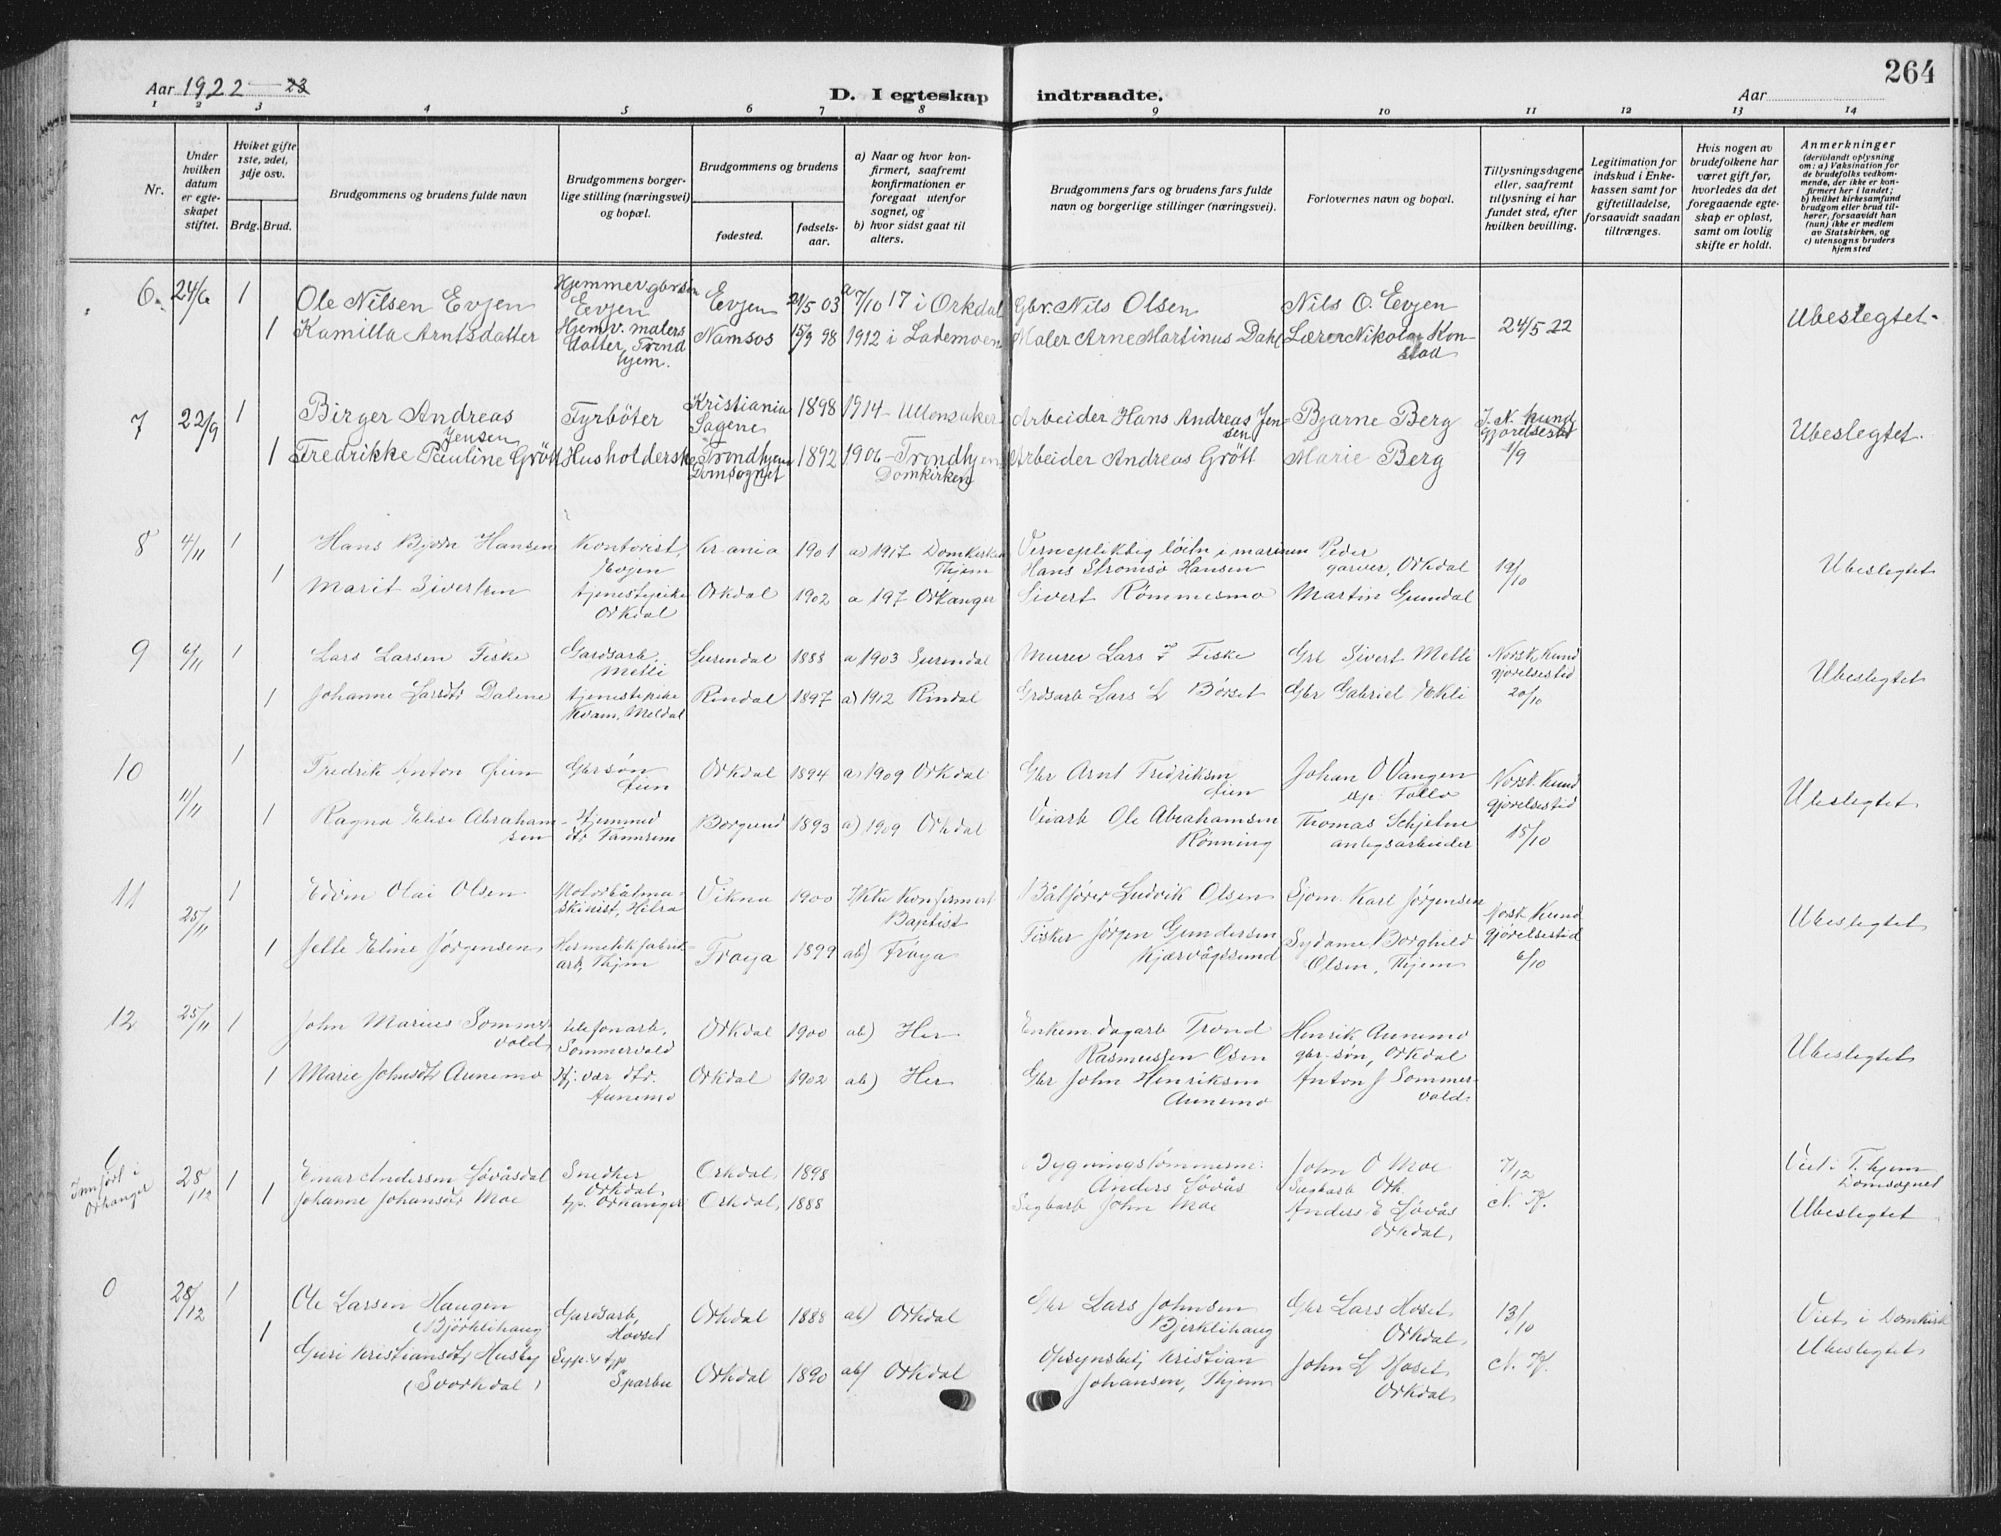 264
Aar 1922 23
D. I egteskap indtraadte.
Aar
1 2 3 4 5 6 7 8 9 10 11 12 13 14
Nr.
Under hvilken datum er egteskapet stiftet.
Hviket gifte 1ste, 2det, 3dje osv.
Brdg. Brud.
Brudgommens og brudens fulde navn
Brudgommens borgerlige stilling (næringsvei) og bopæl.
Brudgommens og brudens
fødested.
fødselsaar.
a) Naar og hvor konfirmert, saafremt konfirmationen er foregaat utenfor sognet, og
b) hvor sidst gaat til alters.
Brudgommens fars og brudens fars fulde navn og borgerlige stillinger (næringsvei).
Forlovernes navn og bopæl.
Tillysningsdagene eller, saafremt tillysning ei har fundet sted, efter hvilken bevilling.
Legitimation for indskud i Enkekassen samt for giftetilladelse, forsaavidt saadan tiltrænges.
Hvis nogen av brudefolkene har været gift før, hvorledes da det foregaaende egteskap er opløst, samt om lovlig skifte er holdt.
Anmerkninger
(deriblandt oplysning om: a) Vaksination for de brudefolks vedkommende, der ikke er konfirmert her i landet; b) hvilket kirkesamfund brudgom eller brud tilhører, forsaavidt han (hun) ikke er medlem av Statskirken, og c) utensogns bruders hjemsted
6. 24/6 1 Ole Nilsen Evjen Evjen Evjen 21/5 03 a 7/10 17 i Orkdal Gbr. Nils Olsen Nils O. Evjen
24/5 22 Ubeslegtet-
1 Kamilla Arntsdatter Hjemv. malers datter, Trondhjem. Namsos 15/9 98 1912 i Lademoen Maler Arne Martinus Dahl Lærer Nikolai Konstad
7 22/9 1 Birger Andreas Jensen Fyrböter Kristiania Sagene 1898 1914 - Ullensaker Arbeider Hans Andreas Jensen Bjarne Berg
N. kundgjørelsestid 1/9 Ubeslegtet.
1 Fredrikke Pauline Grött Husholderske Trondhjem Domsognet 1892 1906 - Trondhjem Domkirken Arbeider Andreas Grött Marie Berg
8 4/11 1 Hans Bjørn Hansen Kontorist, Evjen Kr.ania 1901 a) 1917 Domkirken Thjem Vernepliktig löitn i marinen Hans Strømsø Hansen Peder garver, Orkdal
19/10 Ubeslegtet
1 Marit Sivertsen tjenestepike Orkdal Orkdal 1902 a 197 Orkanger Sivert Rømmesmo Martin Gumdal
9 6/11 1 Lars Larsen Fiske Gardsarb. Melli Surendal 1888 a 1903 Surendal Murer Lars Fiske Gbr Sivert Melli
Norsk Kundgjørelsestid 20/10 Ubeslegtet
1 Johanne Larsdtr Dalene tjenestepike Kvam, Meldal Rindal 1897 a) 1912 Rindal Grdsarb Lars L Børset Gbr Gabriel Ekli
10 11/11 1 Fredrik Anton Øien Gbr søn Øien Orkdal 1894 a) 1909 Orkdal Gbr Arnt Fredriksen Øien Johan O Vangen
Norsk Kundgjørelsestid 15/10 Ubeslegtet
1 Ragna Elise Abrahamsen Borgund 1893 a) 1909 Orkdal Ole Abrahamsen Rønning Thomas Schjelne anlegsarbeider
11 25/11 1 Edvin Olai Olsen Motorbåtmaskinist, Hitra Vikna 1900 Ikke Konfirmert Baptist Båtfører Ludvik Olsen Sjøm. Karl Jørgensen
Norsk Kundgjørelsestid 6/10 Ubeslegtet
1 Jelle Eline Jørgensen Hermetikfabrikarb, Thjem Frøya 1899 ab) Frøya Fisker Jørgen Gundersen Kjærvågsund Sydame Borghild Olsen, Thjem
12 25/11 1 John Marius Sommervold telefonarb. Sommervold Orkdal 1900 ab) Her Enkem. dagarb Trond Rasmussen Henrik Aunemo gbr-søn, Orkdal
Ubeslegtet
1 Marie Johnsdtr Aunemo Hj. vær dtr. Aunemo Orkdal 1902 ab) Her Gbr John Henriksen Aunemo Anton J Sommervold
Innført i Orkanger 28/12 1 Einar Andersen Løvåsdal Snedker Orkdal Orkdal 1898 Bygningstømmerm. Anders Løvås John O Moe Ork.
7/12 N. K. Viet i T.hjem Domsognet Ubeslegtet
1 Johanne Johansdtr Moe Orkanger Orkdal 1888 Sagbarb John Moe Anders E Løvås Orkdal
0 28/12 1 Ole Larsen Haugen (Bjørklihaug Gardsarb, Hovset Orkdal 1888 ab) Orkdal Gbr Lars Johnsen Bjerklihaug Gbr Lars Hoset Orkdal
13/10 N. K. Viet i Domkirk Ubeslegtet
1 Guri Kristiansdtr Husby (Svorkdal) Sparbu Orkdal 1890 ab) Orkdal Opsynsbetj Kristian Johansen, Thjem John L Hoset Orkdal